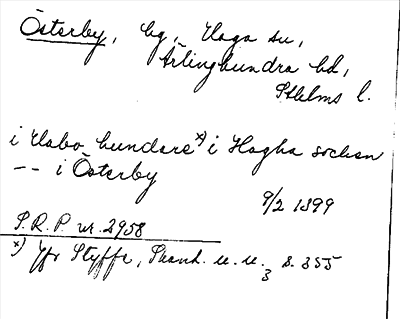 Österby, by, Haga sn,
Ärlinghundra hd,
Sthlms l.
i Habo hundare x) i Hagha sochen
-- i Österby
9/2 1399
S.R.P. nr. 2958
x) Jfr Styffe, Skand. u. u. 3 s. 355